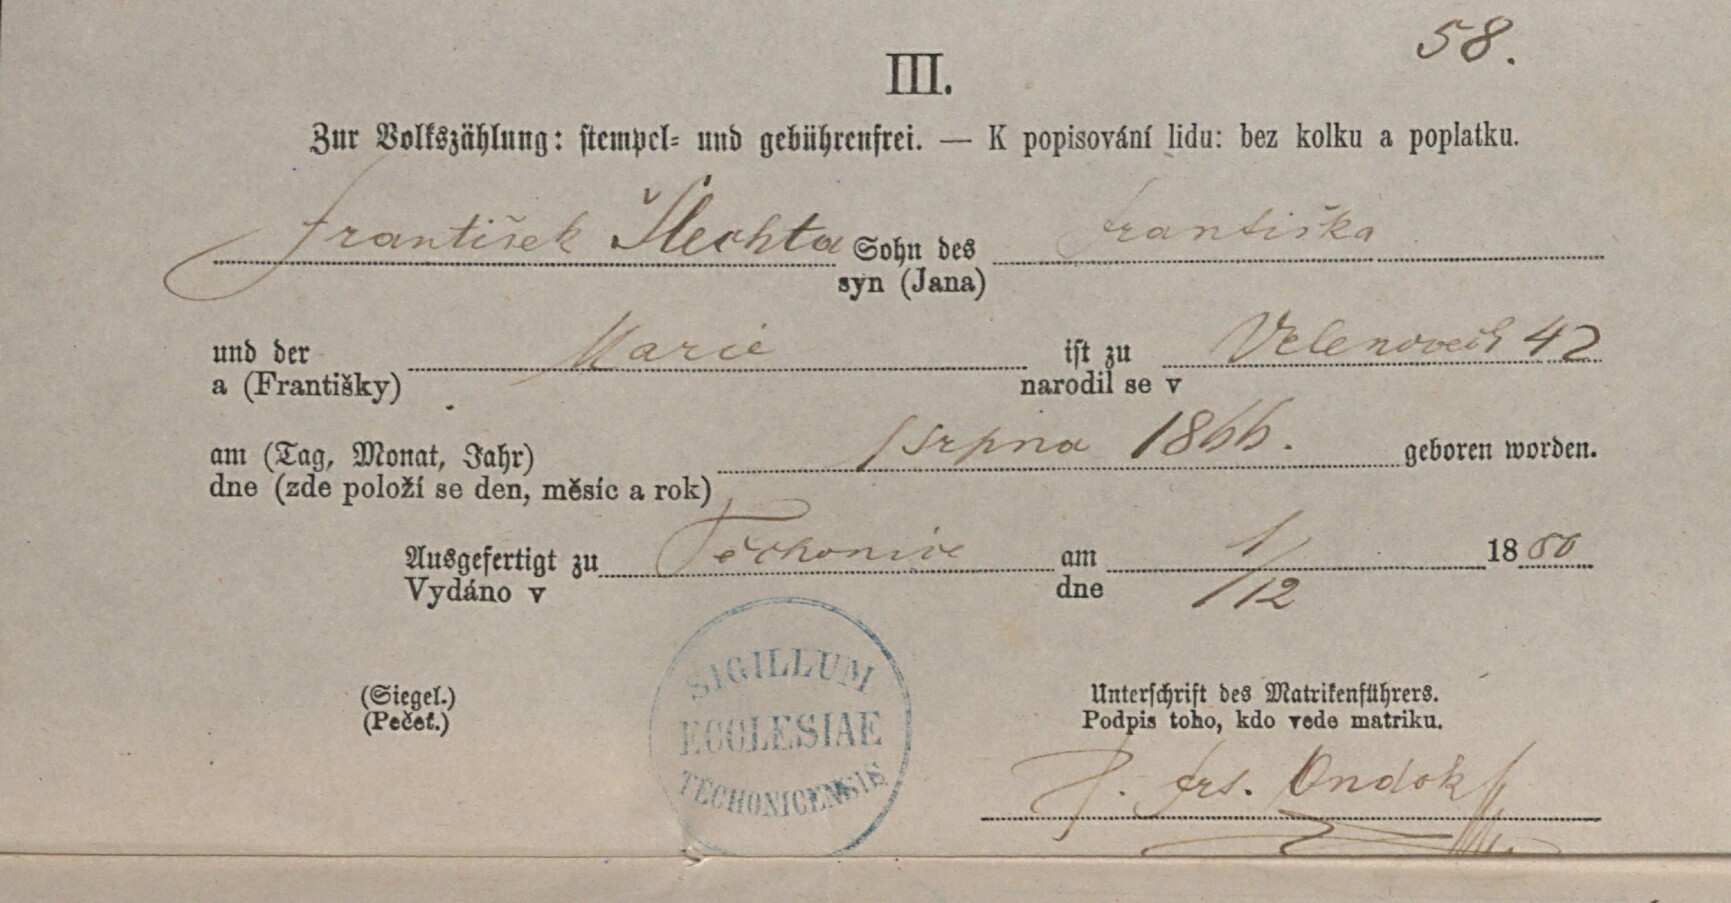 58.
III.
Zur Volkszählung: stempel- und gebührenfrei. — K popisování lidu: bez kolku a poplatku.
František Šlechta Sohn des Františka
syn (Jana)
und der Marie ist zu Velenovech 42
a (Františky) narodil se v
am (Tag, Monat, Jahr) 1 srpna 1866. geboren worden.
dne (zde položí se den, měsíc a rok)
Ausgefertigt zu Těchonice am 1/12 1880
Vydáno v dne
SIGILLUM
ECCLESIAE
TĚCHONICENSIS
(Siegel.)
(Pečeť.)
Unterschrift des Matrikenführers.
Podpis toho, kdo vede matriku.
P. Frs. Ondok